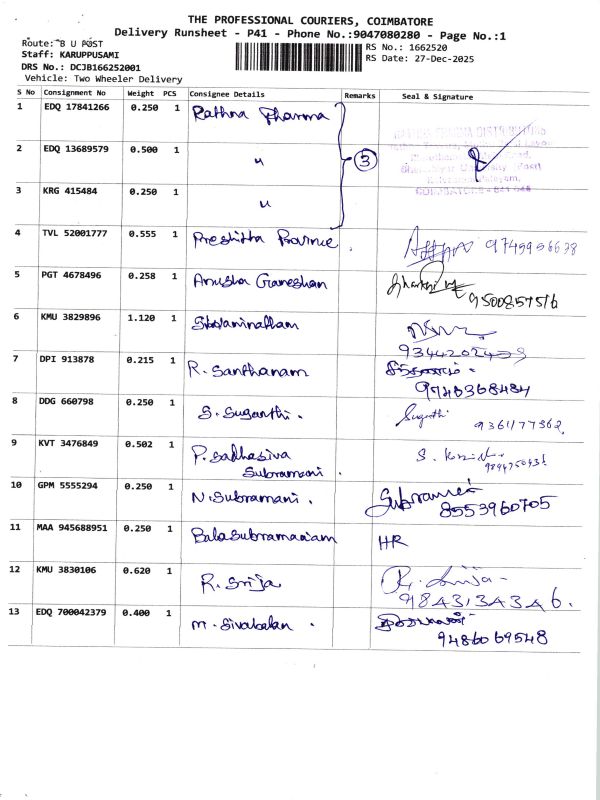 THE PROFESSIONAL COURIERS, COIMBATORE
Delivery Runsheet - P41 - Phone No.:9047080280 - Page No.:1
Route: B U POST
RS No.: 1662520
Staff: KARUPPUSAMI
RS Date: 27-Dec-2025
DRS No.: DCJB166252001
Vehicle: Two Wheeler Delivery
S No Consignment No Weight PCS Consignee Details Remarks Seal & Signature
1 EDQ 17841266 0.250 1 Rathna Pharma
2 EDQ 13689579 0.500 1 〃 3
3 KRG 415484 0.250 1 〃
COIMBATORE - 641 046
4 TVL 52001777 0.555 1
5 PGT 4678496 0.258 1 Anusha Ganeshan 9500857516
6 KMU 3829896 1.120 1
7 DPI 913878 0.215 1 R. Santhanam
9746368484
8 DDG 660798 0.250 1 S. Suganthi. Suganthi 9361177362
9 KVT 3476849 0.502 1 P. Sadhasiva
Subramani.
10 GPM 5555294 0.250 1 N. Subramani.
8553960705
11 MAA 945688951 0.250 1 Bala Subramaniam HR
12 KMU 3830106 0.620 1 R. Srija R. Srija
9843134346.
13 EDQ 700042379 0.400 1 M. Sivabalan.
9486069548